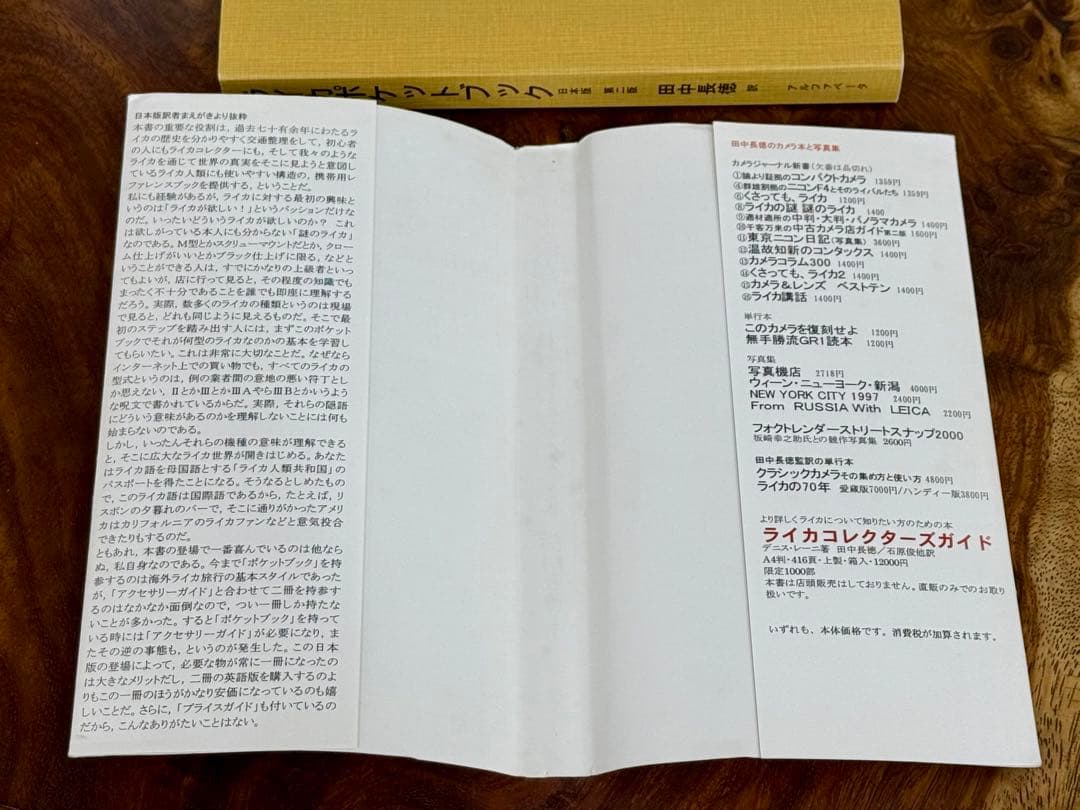 ライカポケットブック 日本版 第二版 田中長徳 訳 アルファベータ
日本版訳者まえがきより抜粋
本書の重要な役割は，過去七十有余年にわたるラ
イカの歴史を分かりやすく交通整理をして，初心者
の人にもライカコレクターにも，そして我々のような
ライカを通じて世界の真実をそこに見ようと意図し
ているライカ人類にも使いやすい構造の，携帯用レ
ファレンスブックを提供する，ということだ。
私にも経験があるが，ライカに対する最初の興味と
いうのは「ライカが欲しい！」というパッションだけな
のだ。いったいどういうライカが欲しいのか？ これ
は欲しがっている本人にも分からない「謎のライカ」
なのである。M型とかスクリューマウントだとか，クロー
ム仕上げがいいとかブラック仕上げに限る，などと
いうことができる人は，すでにかなりの上級者といっ
てもよいが，店に行って見ると，その程度の知識でも
まったく不十分であることを誰でも即座に理解する
だろう。実際，数多くのライカの種類というのは現場
で見ると，どれも同じように見えるものだ。そこで最
初のステップを踏み出す人には，まずこのポケット
ブックでそれが何型のライカなのかの基本を学習し
てもらいたい。これは非常に大切なことだ。なぜなら
インターネット上での買い物でも，すべてのライカの
型式というのは，例の業者間の意地の悪い符丁とし
か思えない，ⅡとかⅢとかⅢAやらⅢBとかいうよう
な呪文で書かれているからだ。実際，それらの隠語
にどういう意味があるのかを理解しないことには何も
始まらないのである。
しかし，いったんそれらの機種の意味が理解できる
と，そこに広大なライカ世界が開きはじめる。あなた
はライカ語を母国語とする「ライカ人類共和国」の
パスポートを得たことになる。そうなるとしめたもの
で，このライカ語は国際語であるから，たとえば，リ
スボンの夕暮れのバーで，そこに通りがかったアメリ
カはカリフォルニアのライカファンなどと意気投合
できたりもするのだ。
ともあれ，本書の登場で一番喜んでいるのは他なら
ぬ，私自身なのである。今まで「ポケットブック」を持
参するのは海外ライカ旅行の基本スタイルであった
が，「アクセサリーガイド」と合わせて二冊を持参す
るのはなかなか面倒なので，つい一冊しか持たな
いことが多かった。すると「ポケットブック」を持って
いる時には「アクセサリーガイド」が必要になり，ま
たその逆の事態も，というのが発生した。この日本
版の登場によって，必要な物が常に一冊になったの
は大きなメリットだし，二冊の英語版を購入するのよ
りもこの一冊のほうがかなり安価になっているのも嬉
しいことだ。さらに，「プライスガイド」も付いているの
だから，こんなありがたいことはない。
田中長徳のカメラ本と写真集
カメラジャーナル新書（欠番は品切れ）
①論より証拠のコンパクトカメラ 1359円
④群雄割拠のニコンF4とそのライバルたち 1359円
⑥くさっても、ライカ 1200円
⑧ライカの謎 謎のライカ 1400
⑨適材適所の中判・大判・パノラマカメラ 1400円
⑩千客万来の中古カメラ店ガイド第二版 1600円
⑪東京ニコン日記（写真集） 3600円
⑫温故知新のコンタックス 1400円
⑬カメラコラム300 1400円
⑭くさっても、ライカ2 1400円
⑮カメラ＆レンズ ベストテン 1400円
⑯ライカ講話 1400円
単行本
このカメラを復刻せよ 1200円
無手勝流GR1読本 1200円
写真集
写真機店 2718円
ウィーン・ニューヨーク・新潟 4000円
NEW YORK CITY 1997 2400円
From RUSSIA With LEICA 2200円
フォクトレンダーストリートスナップ2000
坂崎幸之助氏との競作写真集 2600円
田中長徳監訳の単行本
クラシックカメラその集め方と使い方 4800円
ライカの70年 愛蔵版7000円/ハンディー版3800円
より詳しくライカについて知りたい方のための本
ライカコレクターズガイド
デニス・レーニ著 田中長徳／石原俊他訳
A4判・416頁・上製・箱入・12000円
限定1000部
本書は店頭販売はしておりません。直販のみでのお取り
扱いです。
いずれも、本体価格です。消費税が加算されます。